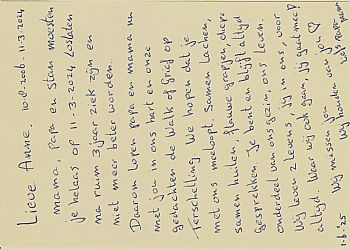 Lieve Anne, 10-8-2006 - 11-3-2024
mama, papa en Stan moesten
je helaas op 11-3-2024 loslaten
na ruim 3 jaar ziek zijn en
niet meer beter worden.
Daarom lopen papa en mama nu
met jou in ons hart en onze
gedachten de Walk of Grief op
Terschelling. We hopen dat je
met ons meeloopt. Samen lachen,
samen huilen, flauwe grappen, diepe
gesprekken. Je bent en blijft altijd
onderdeel van ons gezin, ons leven.
Wij leven 2 levens, jij in ons, voor
altijd. Waar wij ook gaan, jij gaat mee!
Wij missen jou
houden van jou ♡